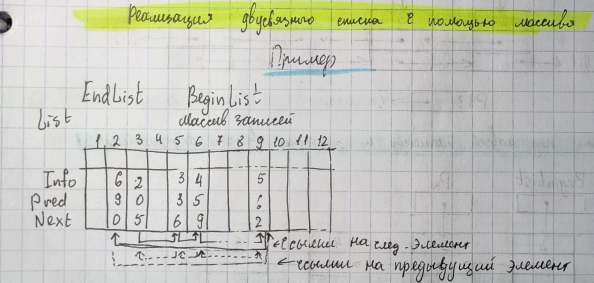 Реализация двусвязного списка с помощью массива
Пример
EndList BeginList
List массив записей
1 2 3 4 5 6 7 8 9 10 11 12
Info 6 2 3 4 5
Pred 9 0 3 5 6
Next 0 5 6 9 2
ссылки на след. элемент
ссылки на предыдущий элемент